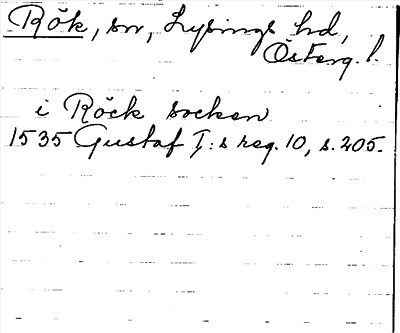 Rök, sn, Lysings hd,
Österg. l.
i Röck socken
1535 Gustaf I:s reg. 10, s. 205.